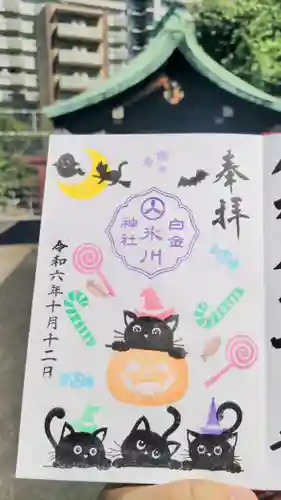 奉拝
白金
氷川
神社
令和六年十月十二日